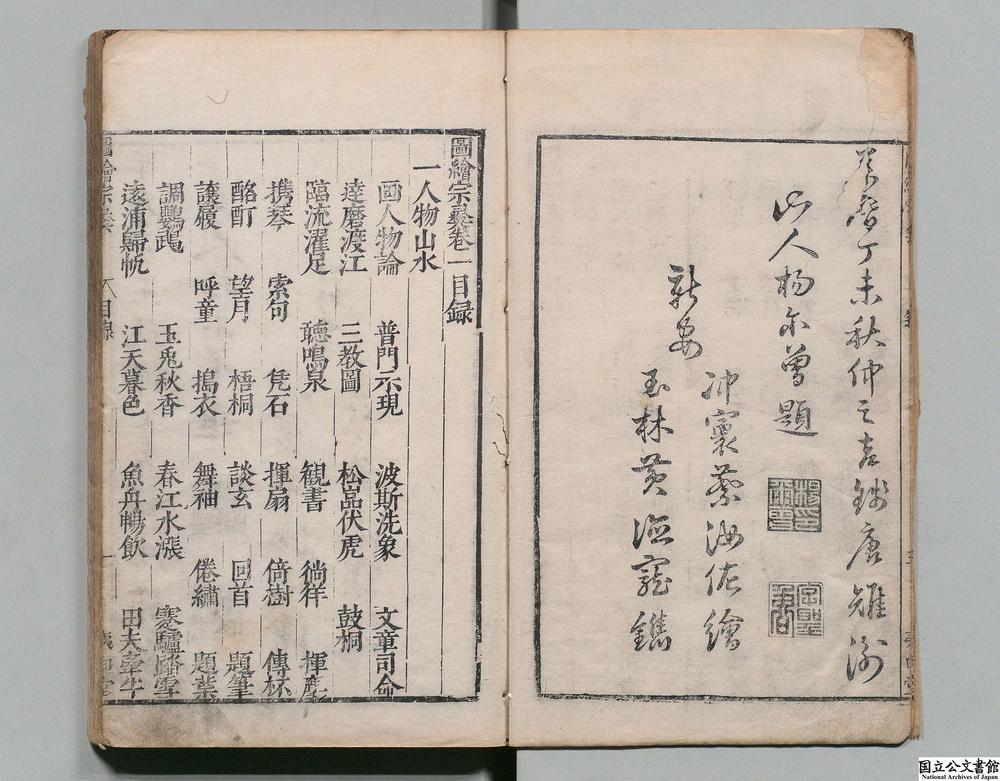 萬曆丁未秋仲之吉錢唐雉衡
山人楊尔曾題
新安
冲寰蔡汝佐繪
玉林黃德寵鐫
楊印爾曾
圖繪宗彛卷一目録
一人物山水
画人物論 普門示現 波斯洗象 文章司命
達磨渡江 三教圖 松岩伏虎 鼓桐
臨流濯足 聴鳴泉 観書 徜徉 揮麈
携琴 索句 凭石 揮扇 倚樹 傳杯
酩酊 望月 梧桐 談玄 回首 題筆
讓履 呼童 搗衣 舞袖 倦繡 題葉
調鸚鵡 玉兎秋香 春江水漲 寒驢踏雪
遠浦歸帆 江天暮色 魚舟暢飲 田夫牽牛
圖繪宗彛 目録 一
国立公文書館
National Archives of Japan